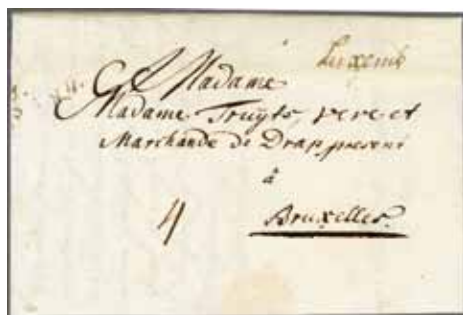 Luxemb
A Madame
Madame Truÿts, vere et
Marchande de Drap present
à
Bruxelles.
4